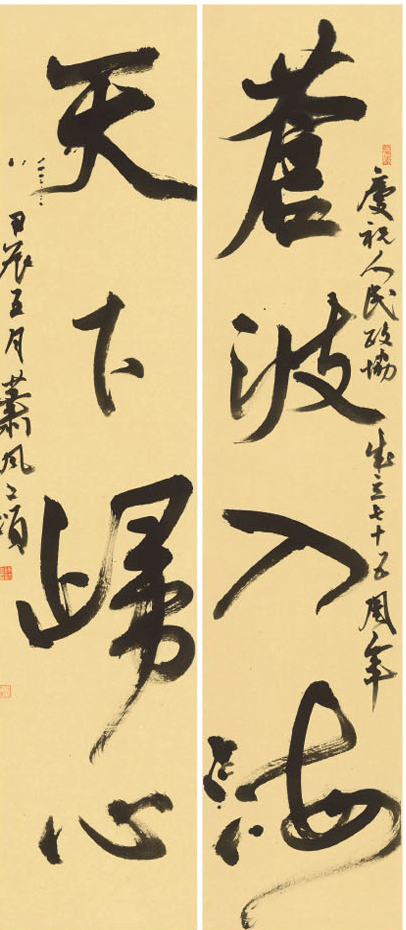 慶祝人民政協成立七十五周年
蒼波入海
天下歸心
甲辰五月蕭風